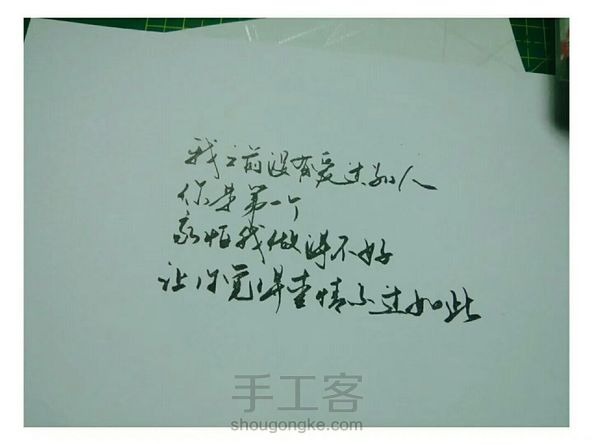 我之前没有爱过别人
你是第一个
好怕我做得不好
让你觉得爱情不过如此
手工客
shougongke.com